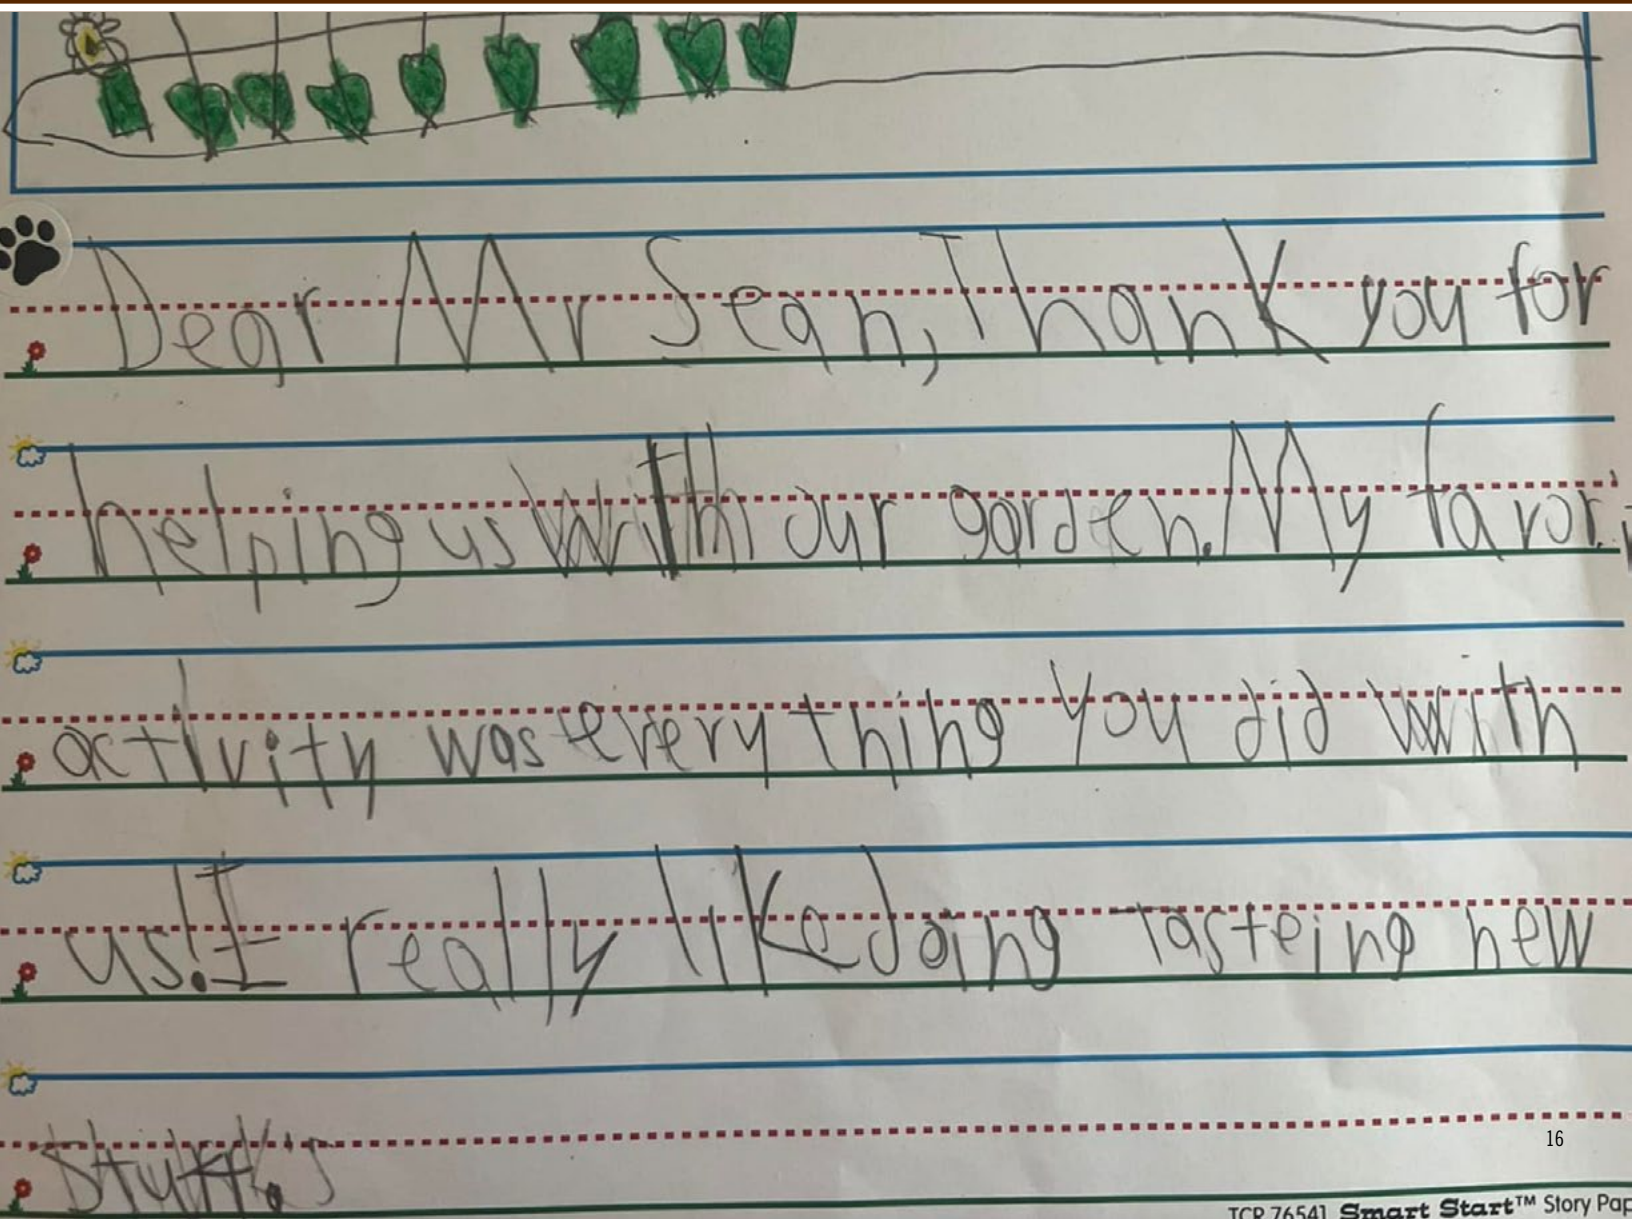 Dear Mr Sean, Thank you for
helping us with our garden. My favori
activity was every thing you did with
us! I really like doing tasteing new
stuff.
16
TCR 76541 Smart Start™ Story Pap